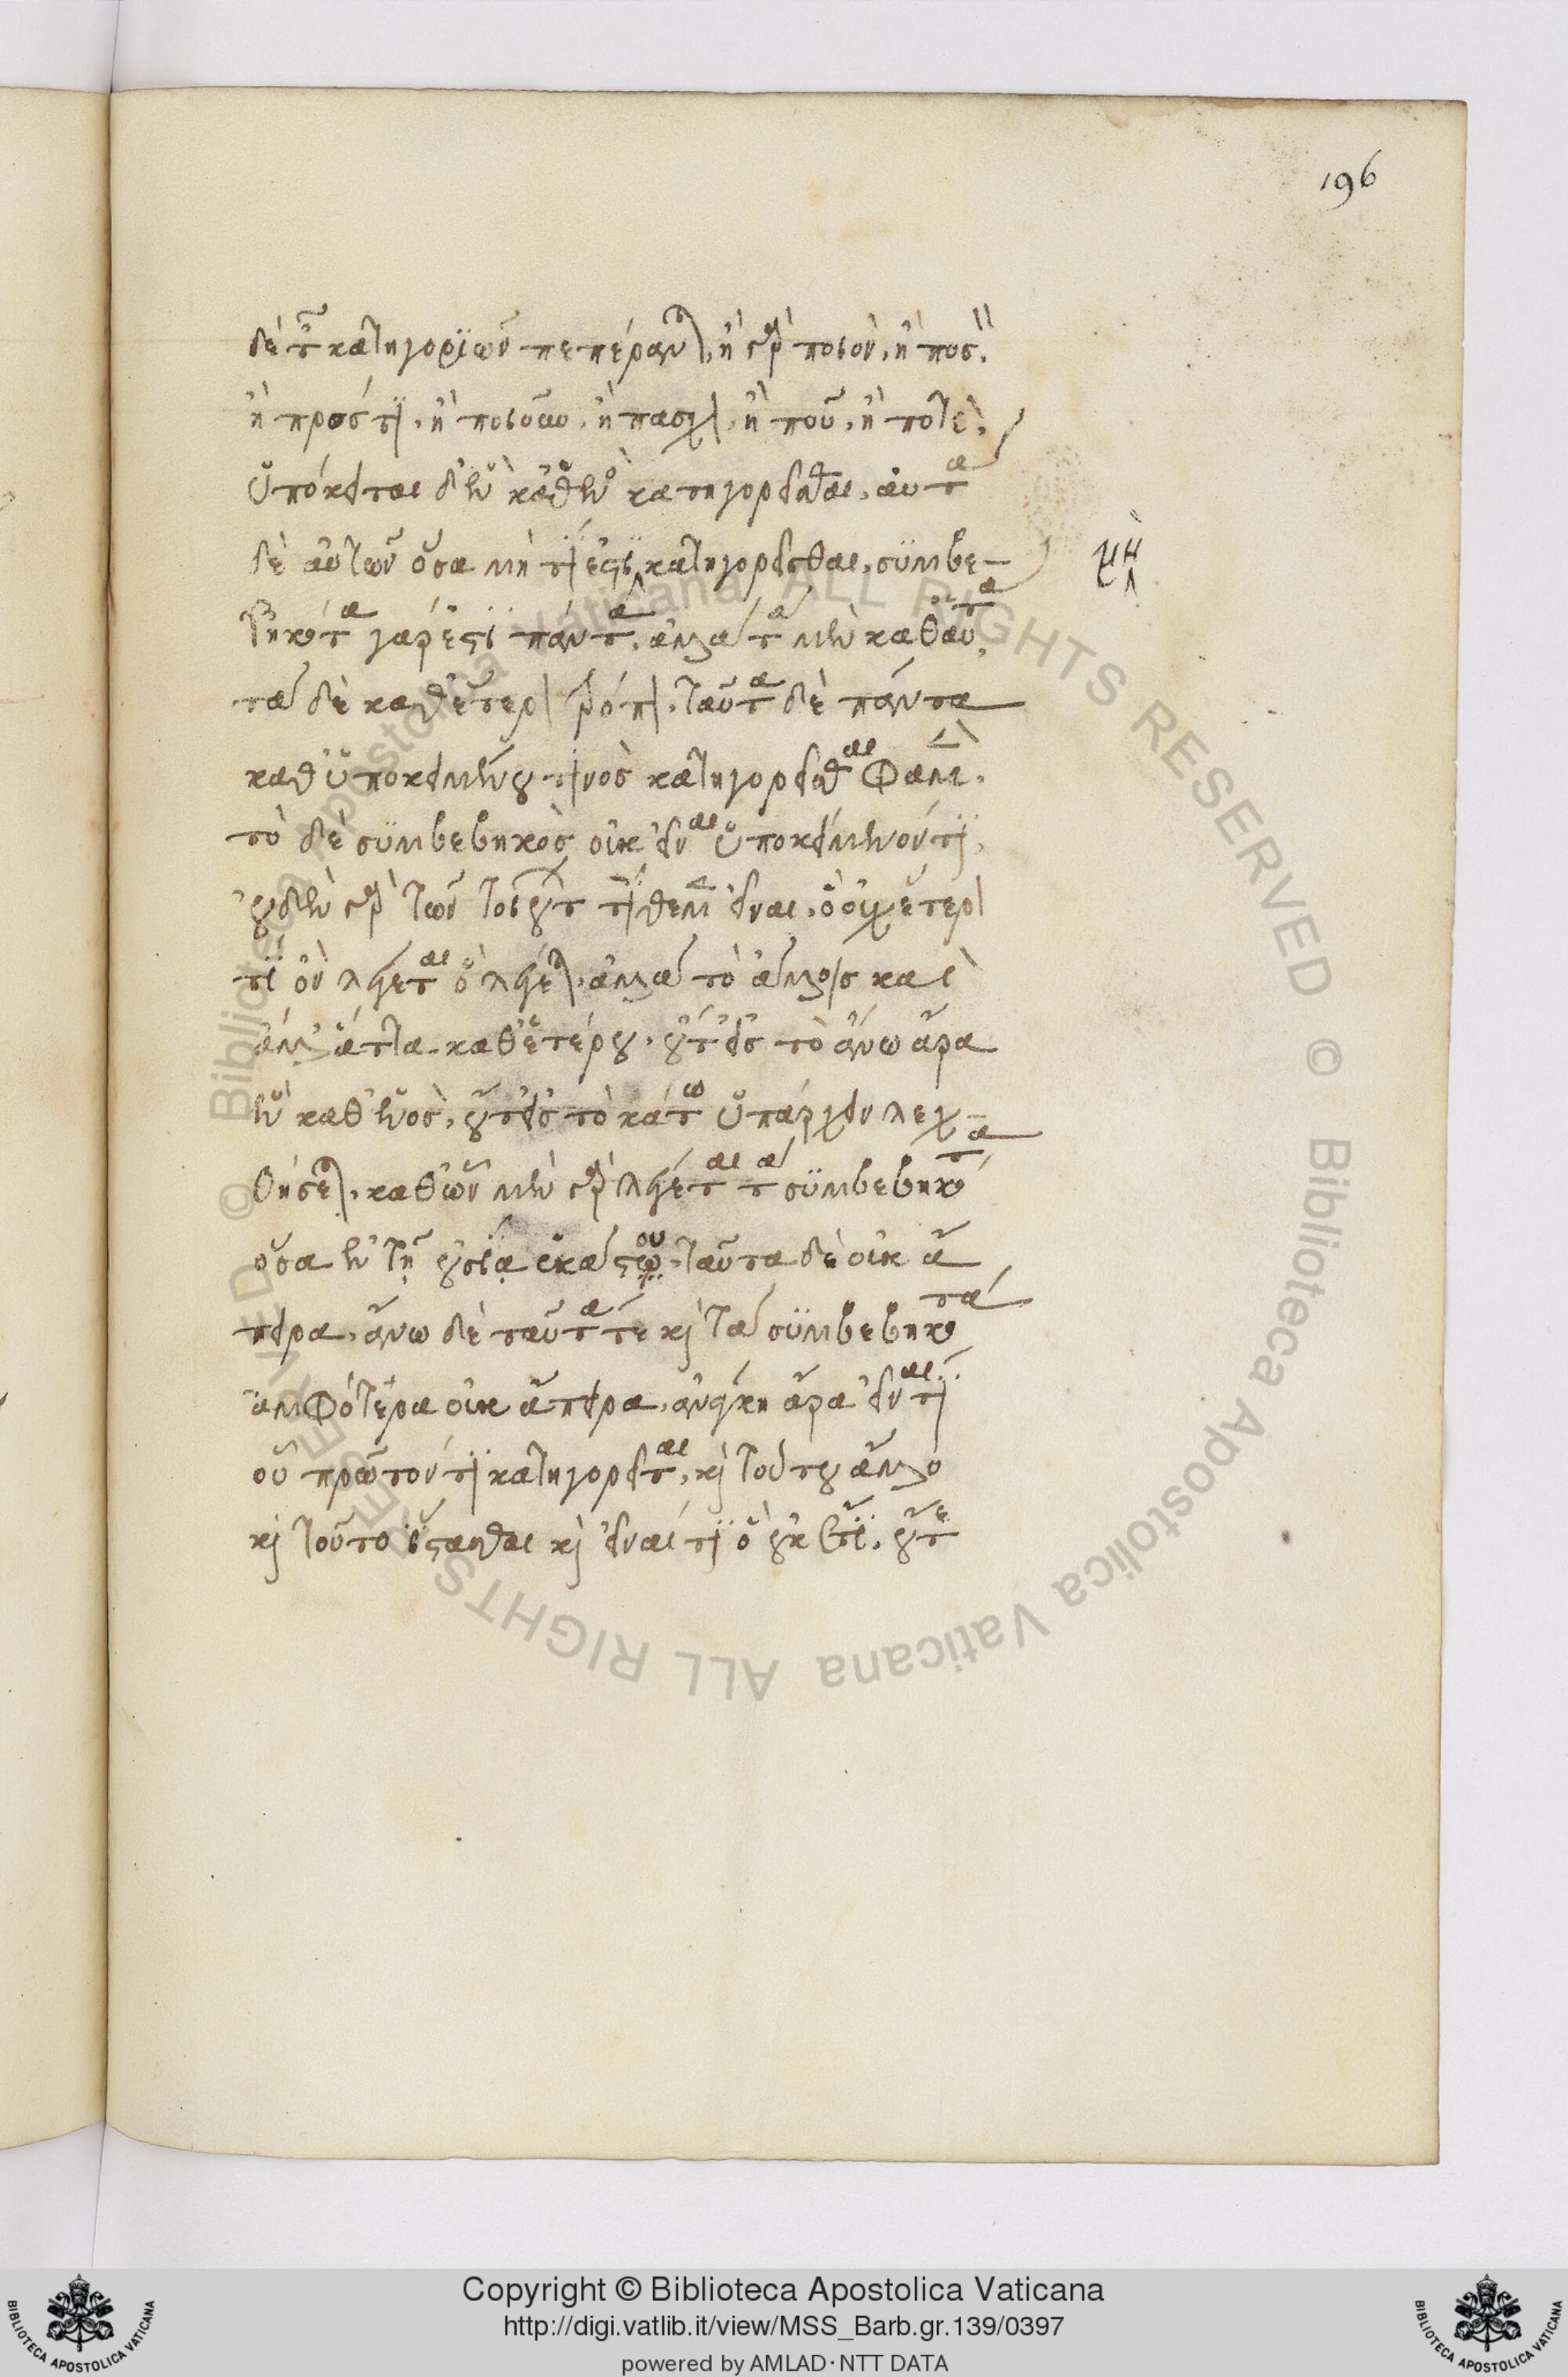 196
δὲ τῶν κατηγοριῶν πεπέρανται. ἢ γὰρ ποιὸν. ἢ ποσὸν.
ἢ πρόςτι. ἢ ποιοῦν. ἢ πάσχον. ἢ ποῦ. ἢ ποτὲ.
ὑπόκειται δὴ ἓν καθ' ἑνὸς κατηγορεῖσθαι. αὐτὰ
δὲ αὑτῶν ὅσα μὴ τί ἐστι κατηγορεῖσθαι. συμβε-
μὴ
βηκότα γάρ ἐστι πάντα. ἀλλὰ τὰ μὲν καθ' αὑτὰ.
τὰ δὲ καθ' ἕτερον τρόπον. ταῦτα δὲ πάντα
καθ' ὑποκειμένου τινὸς κατηγορεῖσθαι φαμὲν.
τὸ δὲ συμβεβηκὸς οὐκ εἶναι ὑποκείμενόν τι.
οὐδὲν γὰρ τῶν τοιούτων τίθεμεν εἶναι. ὃ οὐχ ἕτερόν
τι ὂν λέγεται ὃ λέγεται. ἀλλὰ τὸ ἄλλοις καὶ
ἀλλ' ἄττα καθ' ἑτέρου. οὔτ' εἰς τὸ ἄνω ἄρα
ἓν καθ' ἑνὸς. οὔτ' εἰς τὸ κάτω ὑπάρχειν λεχ-
θήσεται. καθ' ὧν μὲν γὰρ λέγεται τὰ συμβεβηκότα
ὅσα ἐν τῇ οὐσίᾳ ἑκάστου. ταῦτα δὲ οὐκ ἄ
πειρα. ἄνω δὲ ταῦτά τε καὶ τὰ συμβεβηκότα
ἀμφότερα οὐκ ἄπειρα. ἀνάγκη ἄρα εἶναί τι
οὗ πρῶτόν τι κατηγορεῖται. καὶ τούτου ἄλλο
καὶ τοῦτο ἵστασθαι καὶ εἶναί τι ὃ οὐκέτι. οὔτε
© Biblioteca Apostolica Vaticana ALL RIGHTS RESERVED © Biblioteca Apostolica Vaticana ALL RIGHTS RESERVED
Copyright © Biblioteca Apostolica Vaticana
http://digi.vatlib.it/view/MSS_Barb.gr.139/0397
powered by AMLAD·NTT DATA
BIBLIOTECA APOSTOLICA VATICANA
BIBLIOTECA APOSTOLICA VATICANA